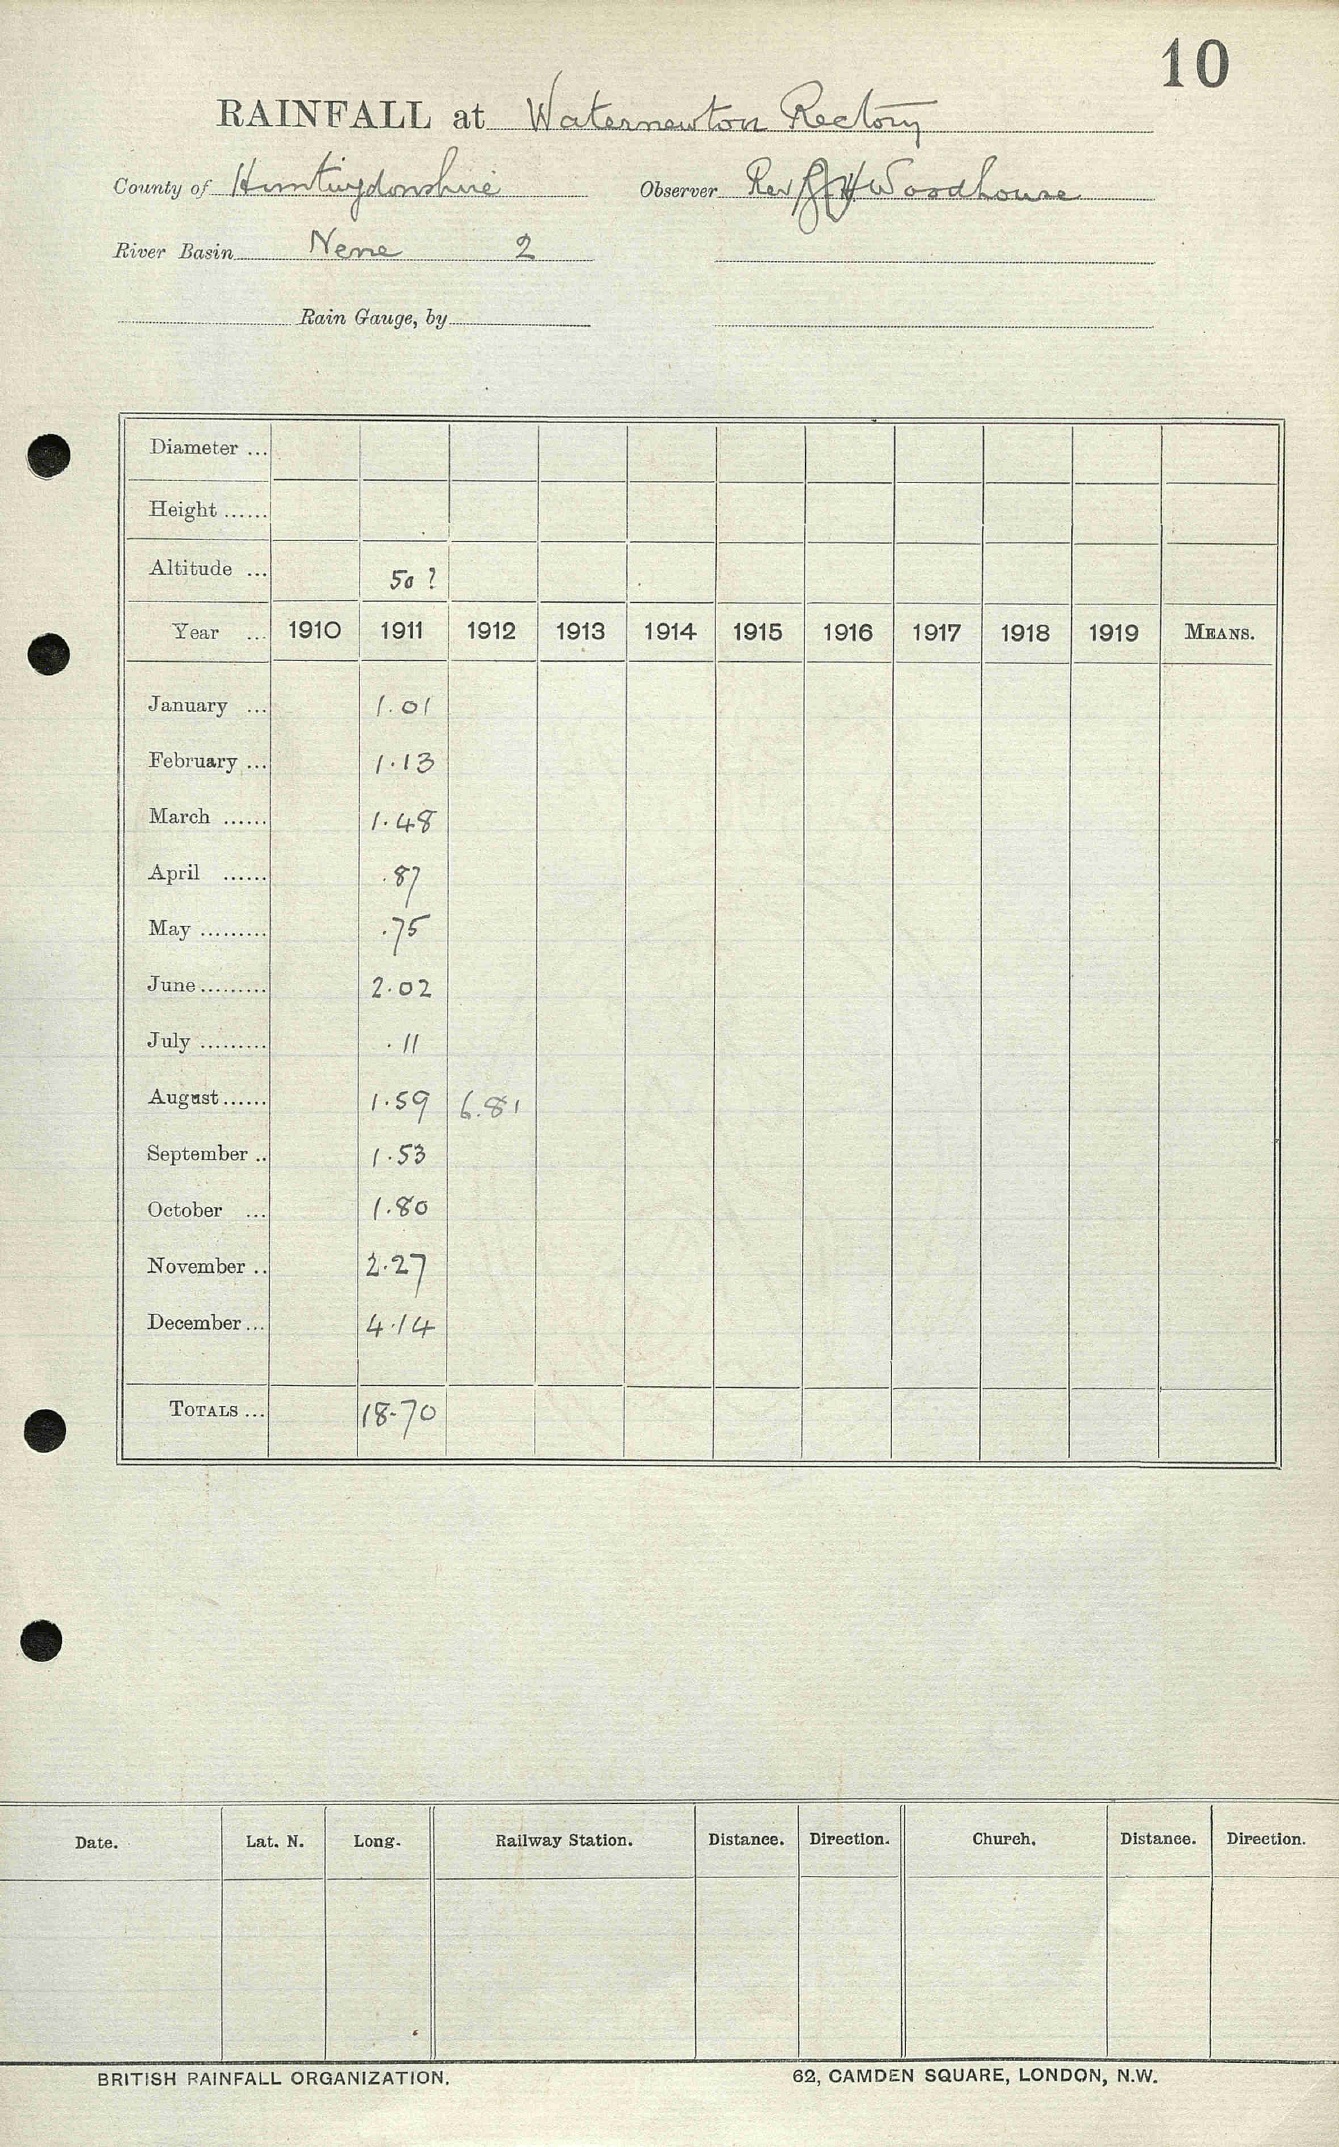 10
RAINFALL at Waternewton Rectory
County of Huntingdonshire Observer Rev H Woodhouse
River Basin Nene 2
Rain Gauge, by
Diameter ...
Height ......
Altitude ... 50 ?
Year ... 1910 1911 1912 1913 1914 1915 1916 1917 1918 1919 MEANS.
January ... 1.01
February ... 1.13
March ...... 1.48
April ...... .87
May ......... .75
June ......... 2.02
July ......... .11
August ...... 1.59 6.81
September .. 1.53
October ... 1.80
November .. 2.27
December ... 4.14
TOTALS ... 18.70
Date. Lat. N. Long. Railway Station. Distance. Direction. Church. Distance. Direction.
BRITISH RAINFALL ORGANIZATION. 62, CAMDEN SQUARE, LONDON, N.W.